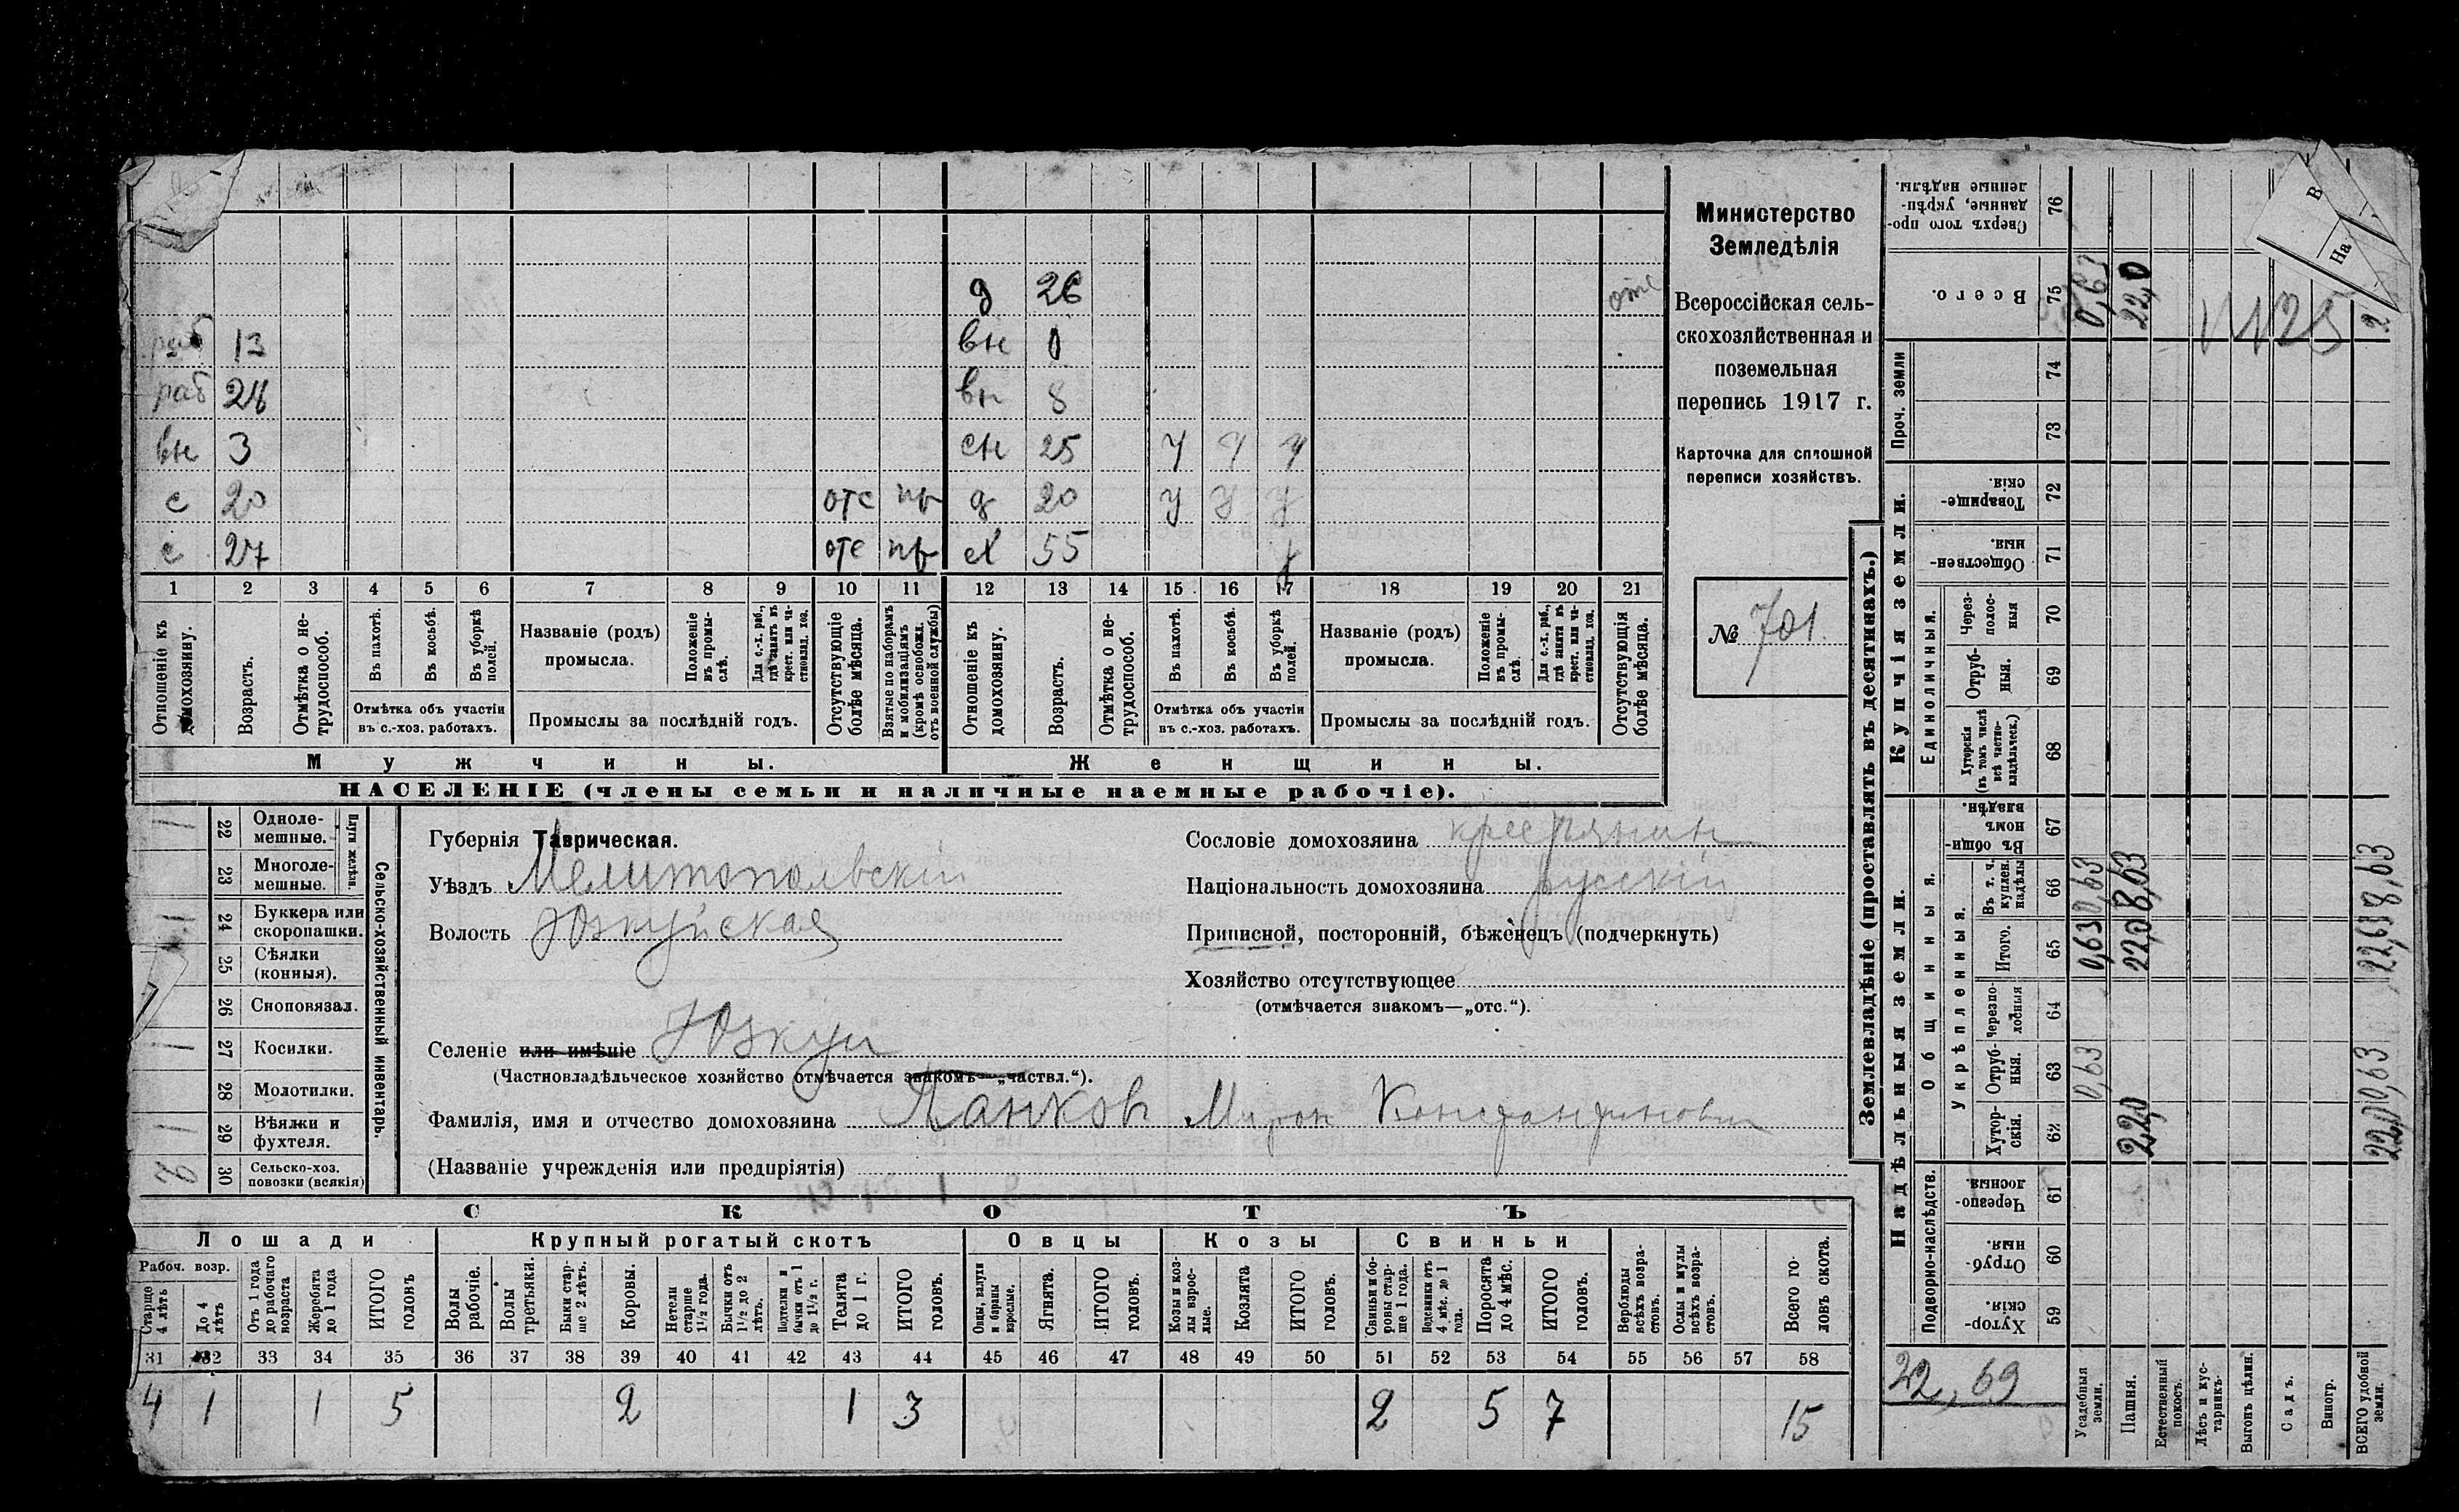 д 26 отс
раб 13 вн 0
раб 24 вн 8
вн 3 сн 25 у у у
с 20 отс пр д 20 у у у
с 27 отс пр сх 55 у
1 2 3 4 5 6 7 8 9 10 11 12 13 14 15 16 17 18 19 20 21
Отношеніе къ домохозяину.
Возрасть.
Отмѣтка о не-
трудоспособ.
Въ пахотѣ.
Въ косьбѣ.
Въ уборкѣ полей.
Отмѣтка объ участіи
въ с.-хоз. работахъ.
Названіе (родъ)
промысла.
Положеніе въ промы-
слѣ.
Для с.-х. раб., гдѣ занятъ въ крест. или ча-
стновлад. хоз.
Промыслы за послѣдній годъ.
Отсутствующіе болѣе мѣсяца.
Взятые по наборамъ и мобилизаціямъ (кромѣ освобожд. отъ военной службы)
Отношеніе къ домохозяину.
Возрасть.
Отмѣтка о не-
трудоспособ.
Въ пахотѣ.
Въ косьбѣ.
Въ уборкѣ полей.
Отмѣтка объ участіи
въ с.-хоз. работахъ.
Названіе (родъ)
промысла.
Положеніе въ промы-
слѣ.
Для с.-х. раб., гдѣ занята въ крест. или ча-
стновлад. хоз.
Промыслы за послѣдній годъ.
Отсутствующія болѣе мѣсяца.
Мужчины. Женщины.
НАСЕЛЕНІЕ (члены семьи и наличные наемные рабочіе).
Министерство
Земледѣлія
Всероссійская сель-
скохозяйственная и
поземельная
перепись 1917 г.
Карточка для сплошной
переписи хозяйствъ.
№ 701
Сельско-хозяйственный инвентарь.
Плуги желѣзн.
1 22 Одноле-
мешные.
23 Многоле-
мешные.
1 24 Буккера или
скоропашки.
25 Сѣялки
(конныя).
26 Сноповязал.
1 27 Косилки.
28 Молотилки.
1 29 Вѣялки и
фухтеля.
2 30 Сельско-хоз.
повозки (всякія)
Губернія Таврическая.
Уѣздъ Мелитопольскій
Волость Юзкуйская
Селеніе или имѣніе Юзкуи
(Частновладѣльческое хозяйство отмѣчается знакомъ—„частвл.“).
Фамилія, имя и отчество домохозяина Панков Мирон Константинович
(Названіе учрежденія или предпріятія)
Сословіе домохозяина крестянин
Національность домохозяина русскій
Приписной, посторонній, бѣженецъ (подчеркнуть)
Хозяйство отсутствующее
(отмѣчается знакомъ—„отс.“).
СКОТЪ
Лошади Крупный рогатый скотъ Овцы Козы Свиньи
Рабоч. возр.
Старше 4 лѣтъ
До 4 лѣтъ
Отъ 1 года до рабочаго возраста
Жеребята до 1 года
ИТОГО головъ
Волы рабочіе.
Волы третьяки.
Быки стар-
ше 2 лѣтъ.
Коровы.
Нетели старше 1½ года.
Бычки отъ 1½ до 2 лѣтъ.
Подтелки и бычки отъ 1 до 1½ г.
Телята до 1 г.
ИТОГО головъ.
Овцы, валухи и бараны взрослые.
Ягнята.
ИТОГО головъ.
Козы и коз-
лы взрос-
лые.
Козлята
ИТОГО головъ.
Свиньи и бо-
ровы стар-
ше 1 года.
Подсвинки отъ 4 мѣс. до 1 года.
Поросята до 4 мѣс.
ИТОГО головъ.
Верблюды всѣхъ возра-
стовъ.
Ослы и мулы всѣхъ возра-
стовъ.
Всего го-
ловъ скота.
31 32 33 34 35 36 37 38 39 40 41 42 43 44 45 46 47 48 49 50 51 52 53 54 55 56 57 58
4 1 1 5 2 1 3 2 5 7 15
Землевладѣніе (проставлять въ десятинахъ.)
Надѣльныя земли. Купчія земли. Проч. земли
Подворно-наслѣдств.
Общинныя.
Укрѣпленныя.
Единоличныя.
Хутор-
скія. 59
Отруб-
ныя. 60
Черезпо-
лосныя. 61
Хутор-
скія. 62
Отруб-
ныя. 63
Черезпо-
лосныя 64
Итого. 65
Въ т. ч. куплен. надѣлы 66
Въ общи-
номъ владѣн. 67
Хуторскія (въ томъ числѣ всѣ частно-
владѣльческ.) 68
Отруб-
ныя. 69
Через-
полос-
ныя 70
Обществен-
ныя. 71
Товарище-
скія. 72
73
74
Всего. 75
Сверхъ того про-
данные, укрѣп-
ленные надѣлы. 76
22,69
Усадебныя земли. 0,63 0,63 0,63 0,63
Пашня. 22,0 22,0 8,63 22,0
Естественный покосъ.
Лѣсъ и кус-
тарникъ.
Выгонъ цѣлин.
Садъ.
Виногр.
ВСЕГО удобной земли. 22,0 0,63 22,63 8,63
В
На